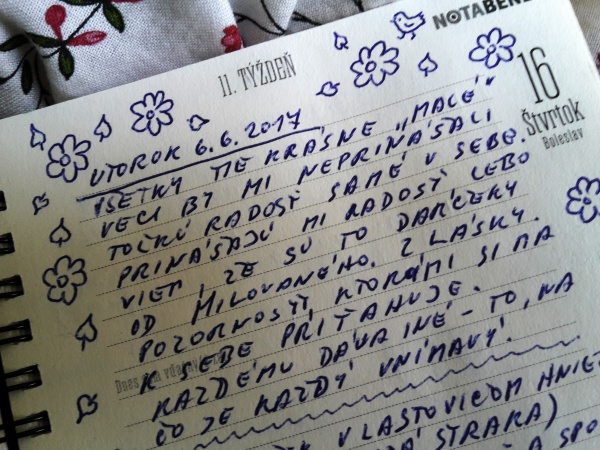 NOTABENE
11. TÝŽDEŇ
16
Štvrtok
Boleslav
UTOROK 6.6.2017
VŠETKY TIE KRÁSNE „MALÉ"
VECI BY MI NEPRINÁŠALI
TOĽKÚ RADOSŤ SAMÉ V SEBE.
PRINÁŠAJÚ MI RADOSŤ LEBO
VIEM, ŽE SÚ TO DARČEKY
OD MILOVANÉHO. Z LÁSKY.
POZORNOSTI KTORÝMI SI MA
K SEBE PRIŤAHUJE.
Dnes
KAŽDÉMU DÁVA INÉ - TO, NA
ČO JE KAŽDÝ VNÍMAVÝ.
V LASTOVIČOM HNIE
STRAKA)
A SPO